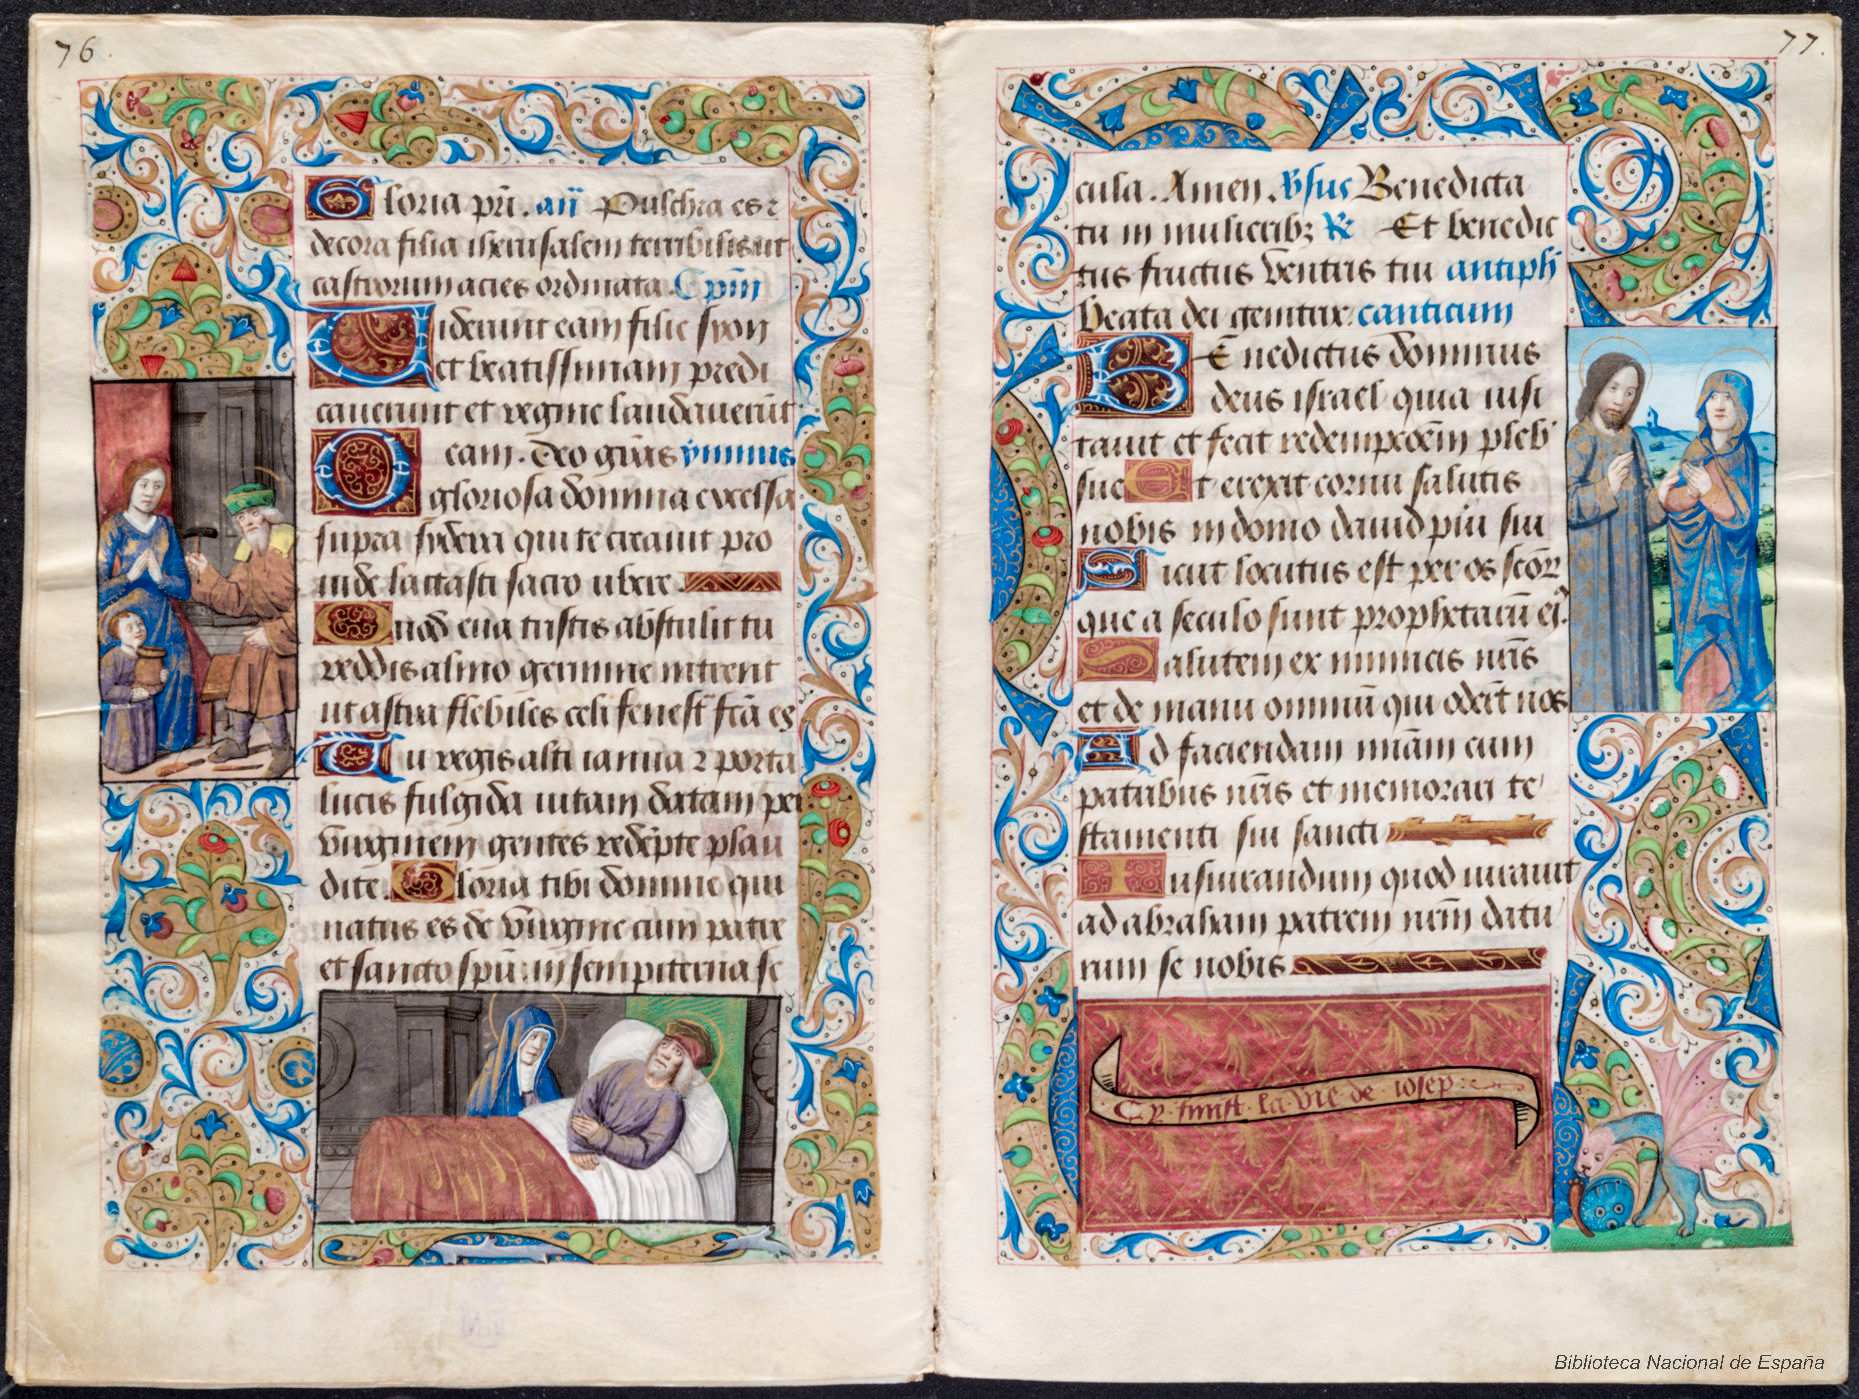 76.
Gloria pr̃i. añ Pulchra es ⁊
decora filia iherusalem terribilis ut
castrorum acies ordinata. Cp̃m
Viderunt eam filie syon
et beatissimam predi
cauerunt et regine laudauerũt
eam. Deo gr̃as ym̃nus
O gloriosa domina excelsa
supra sydera qui te creauit pro
uide lactasti sacro ubere.
Quod eua tristis abstulit tu
reddis almo germine intrent
ut astra flebiles celi fenest̃ fc̃ã es
Tu regis alti ianua ⁊ porta
lucis fulgida uitam datam per
virginem gentes redẽpte plau
dite. Gloria tibi domine qui
natus es de virgine cum patre
et sancto sp̃u: in sempiterna se
77.
cula. Amen. v̾sus Benedicta
tu in mulieribꝫ ℟ Et benedic
tus fructus ventris tui antiph̃
Beata dei genitrix. canticum
BEnedictus dominus
deus israel quia uisi
tauit et fecit redempcõem pleb̾
sue Et erexit cornu salutis
nobis in domo dauid pũi sui
Sicut locutus est per os sc̃oꝝ
que a seculo sunt prophetarũ ei᷒.
Salutem ex inimicis nr̃is
et de manu omniũ qui odẽrt nos
Ad faciendam mĩam cum
patribus nr̃is et memorari te
stamenti sui sancti
Iusiurandum quod iurauit
ad abraham patrem nr̃m datu
rum se nobis
Cy finist la vie de iosep
Biblioteca Nacional de España